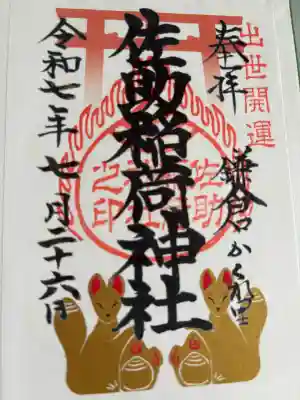 出世開運
奉拝
鎌倉かくれ里
佐助稲荷神社
佐助
之印
令和七年七月二十六日